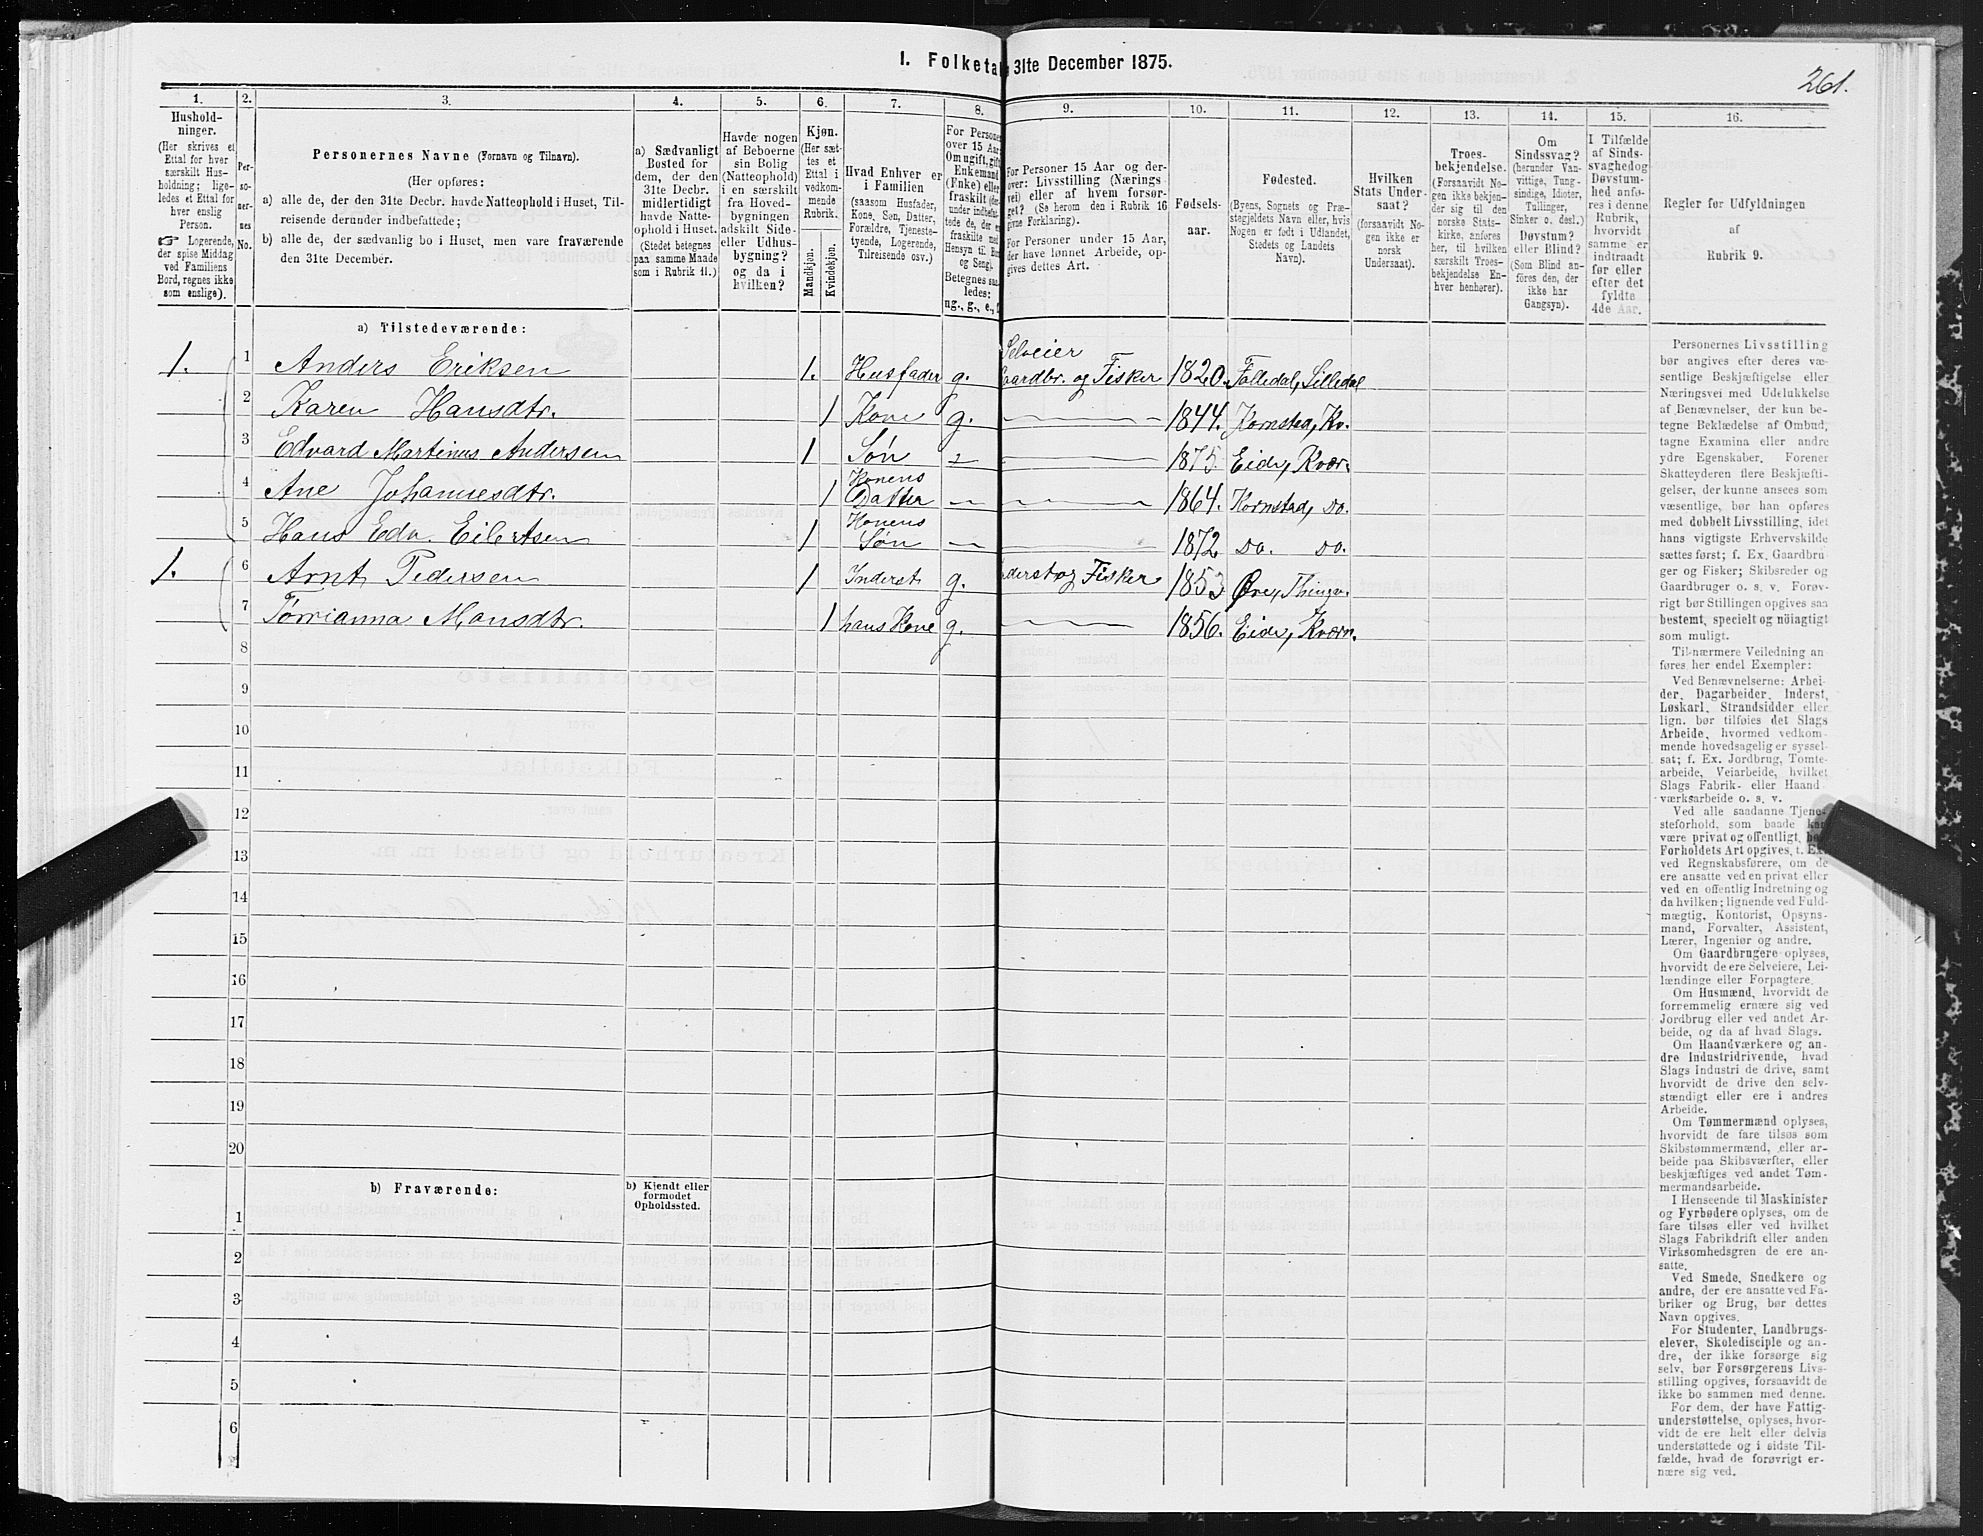 I. Folketa 31te December 1875.
261.
1. 2. 3. 4. 5. 6. 7. 8. 9. 10. 11. 12. 13. 14. 15. 16.
Hushold-
ninger.
(Her skrives et
Ettal for hver
særskilt Hus-
holdning; lige-
ledes et Ettal for
hver enslig
Person.
☞ Logerende,
der spise Middag
ved Familiens
Bord, regnes ikke
som enslige).
Per-
so-
ner-
nes
No.
Personernes Navne (Fornavn og Tilnavn).
(Her opføres:
a) alle de, der den 31te Decbr. havde Natteophold i Huset, Til-
reisende derunder indbefattede;
b) alle de, der sædvanlig bo i Huset, men vare fraværende
den 31te December.
a) Sædvanligt
Bosted for
dem, der den
31te Decbr.
midlertidigt
havde Natte-
ophold i Huset.
(Stedet betegnes
paa samme Maade
som i Rubrik 11.)
Havde nogen
af Beboerne
sin Bolig
(Natteophold)
i en særskilt
fra Hoved-
bygningen
adskilt Side-
eller Udhus-
bygning?
og da i
hvilken?
Kjøn.
(Her sæt-
tes et
Ettal i
vedkom-
mende
Rubrik.
Mandkjøn.
Kvindekjøn.
Hvad Enhver er
i Familien
(saasom Husfader,
Kone, Søn, Datter,
Forældre, Tjeneste-
tyende, Logerende,
Tilreisende osv.)
For Persone
over 15 Aar:
Om ugift, gift
Enkemand
(Enke) elle
fraskilt (der-
under indbefat-
tede de, der er
fraskilte med
Hensyn til Bor
og Seng).
Betegnes saa-
ledes:
ug., g., e., f
For Personer 15 Aar og der-
over: Livsstilling (Nærings-
vei) eller af hvem forsør-
get? (Se herom den i Rubrik 16
givne Forklaring).
For Personer under 15 Aar,
der have lønnet Arbeide, op-
gives dettes Art.
Fødsels-
aar.
Fødested.
(Byens, Sognets og Præ-
stegjeldets Navn eller, hvis
Nogen er født i Udlandet,
Stedets og Landets
Navn).
Hvilken
Stats Under-
saat?
(forsaavidt No-
gen ikke er
norsk
Undersaat).
Troes-
bekjendelse.
(Forsaavidt No-
gen ikke bekjen-
der sig til den
norske Stats-
kirke, anføres
her, til hvilken
særskilt Troes-
bekjendelse En-
hver henhører).
Om
Sindssvag?
(herunder Van-
vittige, Tung-
sindige, Idioter,
Tullinger,
Sinker o. desl.)
Døvstum?
eller Blind?
(Som Blind an-
føres den, der
ikke har
Gangsyn).
I Tilfælde
af Sinds-
svaghedog
Døvstum-
hed anfø-
res i denne
Rubrik,
hvorvidt
samme er
indtraadt
før eller
efter det
fyldte
4de Aar.
Regler for Udfyldningen
af
Rubrik 9.
a) Tilstedeværende:
1. 1 Anders Eriksen 1. Husfader g. Selveier aardbr. og Fisker 1820. Folledal, Silledal
2 Karen Hansdtr. 1 Kone g. 1844. Kornstad, Kv.
3 Edvard Martinus Andersen 1 Søn 1875. Eide, Kvær.
4 Ane Johannesdtr. 1 Konens Datter 1864. Kornstad, Do.
5 Hans Edv. Eilertsen 1 Konens Søn 1872 Do. Do.
1. 6 Arnt Pedersen 1 Inderst g. derst og Fisker 1853 Øre, Thingv.
7 Tørrianna Monsdtr. 1 hans Kone g. 1856. Eide, Kværn.
8
9
10
11
12
13
14
15
16
17
18
19
20
b) Fraværende:
b) Kjendt eller
formodet
Opholdssted.
1
2
3
4
5
6
Personernes Livsstilling
bør angives efter deres væ-
sentlige Beskjæftigelse eller
Næringsvei med Udelukkelse
af Benævnelser, der kun be-
tegne Beklædelse af Ombud,
tagne Examina eller andre
ydre Egenskaber. Forener
Skatteyderen flere Beskjæfti-
gelser, der kunne ansees som
væsentlige, bør han opføres
med dobbelt Livsstilling, idet
hans vigtigste Erhvervskilde
sættes først; f. Ex. Gaardbru-
ger og Fisker; Skibsreder og
Gaardbruger o. s. v. Forøv-
rigt bør Stillingen opgives saa
bestemt, specielt og nöiagtigt
som muligt.
Til nærmere Veiledning an-
føres her endel Exempler:
Ved Benævnelserne: Arbei-
der, Dagarbeider, Inderst,
Løskarl, Strandsidder eller
lign. bør tilføies det Slags
Arbeide, hvormed vedkom-
mende hovedsagelig er syssel-
sat; f. Ex. Jordbrug, Tomte-
arbeide, Veiarbeide, hvilket
Slags Fabrik- eller Haand-
værksarbeide o. s. v.
Ved alle saadanne Tjene-
steforhold, som baade kan
være privat og offentligt, bør
Forholdets Art opgives, t. Ex.
ved Regnskabsførere, om de
ere ansatte ved en privat eller
ved en offentlig Indretning og
da hvilken; lignende ved Fuld-
mægtig, Kontorist, Opsyns-
mand, Forvalter, Assistent,
Lærer, Ingeniør og andre.
Om Gaardbrugere oplyses,
hvorvidt de ere Selveiere, Lei-
lændinge eller Forpagtere.
Om Husmænd, hvorvidt de
forremmelig ernære sig ved
Jordbrug eller ved andet Ar-
beide, og da af hvad Slags.
Om Haandværkere og an-
dre Industridrivende, hvad
Slags Industri de drive, samt
hvorvidt de drive den selv-
stændigt eller ere i andres
Arbeide.
Om Tømmermænd oplyses,
hvorvidt de fare tilsøs som
Skibstømmermænd, eller ar-
beide paa Skibsværfter, eller
beskjæftiges ved andet Tøm-
mermandsarbeide.
I Henseende til Maskinister
og Fyrbødere oplyses, om de
fare tilsøs eller ved hvilket
Slags Fabrikdrift eller anden
Virksomhedsgren de ere an-
satte.
Ved Smede, Snedkere og
andre, der ere ansatte ved Fa-
briker og Brug, bør dettes
Navn opgives.
For Studenter, Landbrugs-
elever, Skoledisciple og an-
dre, der ikke forsørge sig
selv, bør Forsørgerens Livs-
stilling opgives, forsaavidt de
ikke bo sammen med denne.
For dem, der have Fattig-
understøttelse, oplyses, hvor-
vidt de ere helt eller delvis
understøttede og i sidste Til-
fælde, hvad de forøvrigt er-
nære sig ved.